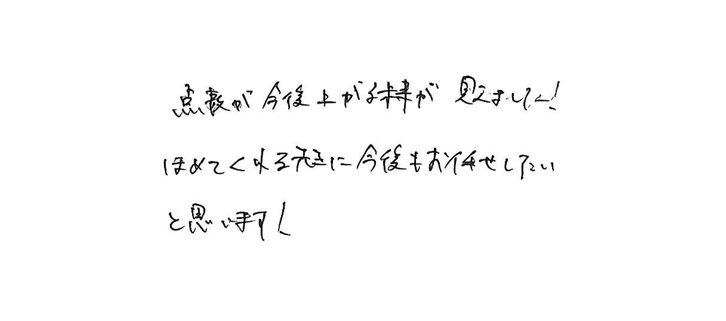 点数が今後上がる未来が見えました!
ほめてくれる先生に今後もお任せしたい
と思います!